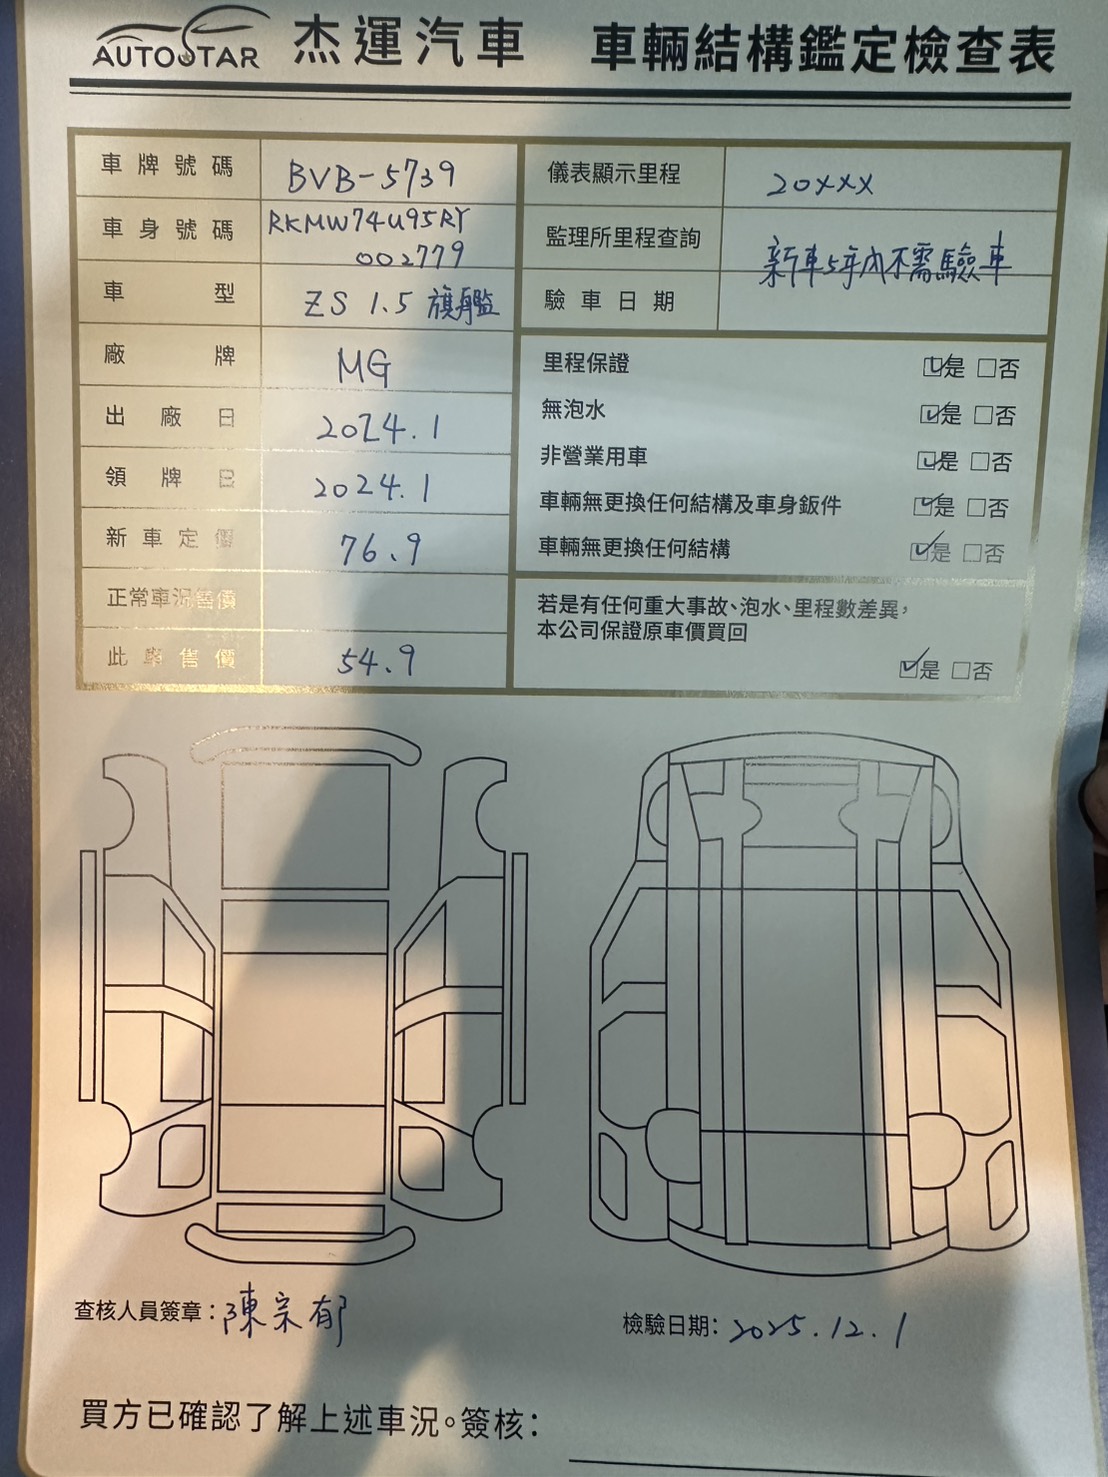 AUTOSTAR 杰運汽車 車輛結構鑑定檢查表
車牌號碼 BVB-5739
車身號碼 RKMW74U95RY
002779
車型 ZS 1.5 旗艦
廠牌 MG
出廠日 2024.1
領牌日 2024.1
新車定價 76.9
正常車況售價
此車售價 54.9
儀表顯示里程 20xxx
監理所里程查詢 新車5年內不需驗車
驗車日期
里程保證 ☑是 □否
無泡水 ☑是 □否
非營業用車 ☑是 □否
車輛無更換任何結構及車身鈑件 ☑是 □否
車輛無更換任何結構 ☑是 □否
若是有任何重大事故、泡水、里程數差異,
本公司保證原車價買回
☑是 □否
查核人員簽章:陳宗郁
檢驗日期:2025.12.1
買方已確認了解上述車況。簽核: